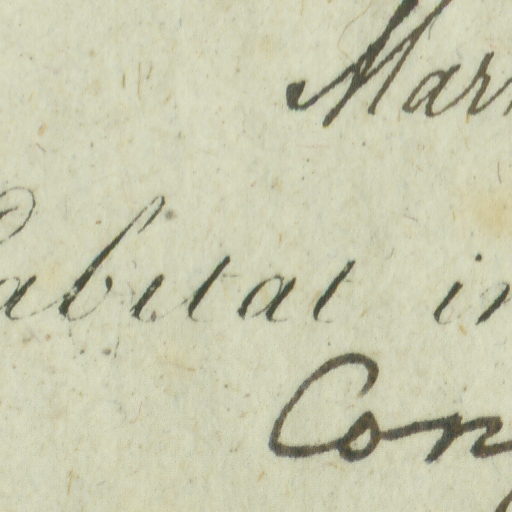 Mar
abitat in
Con